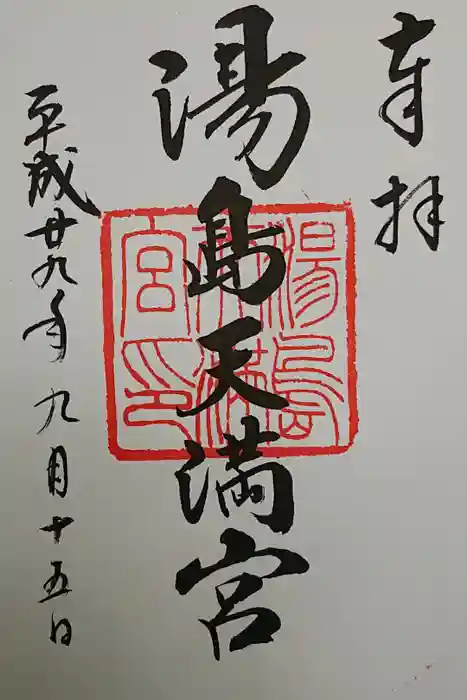 奉拝
湯島天満宮
湯島天満宮印
平成廿九年九月十五日